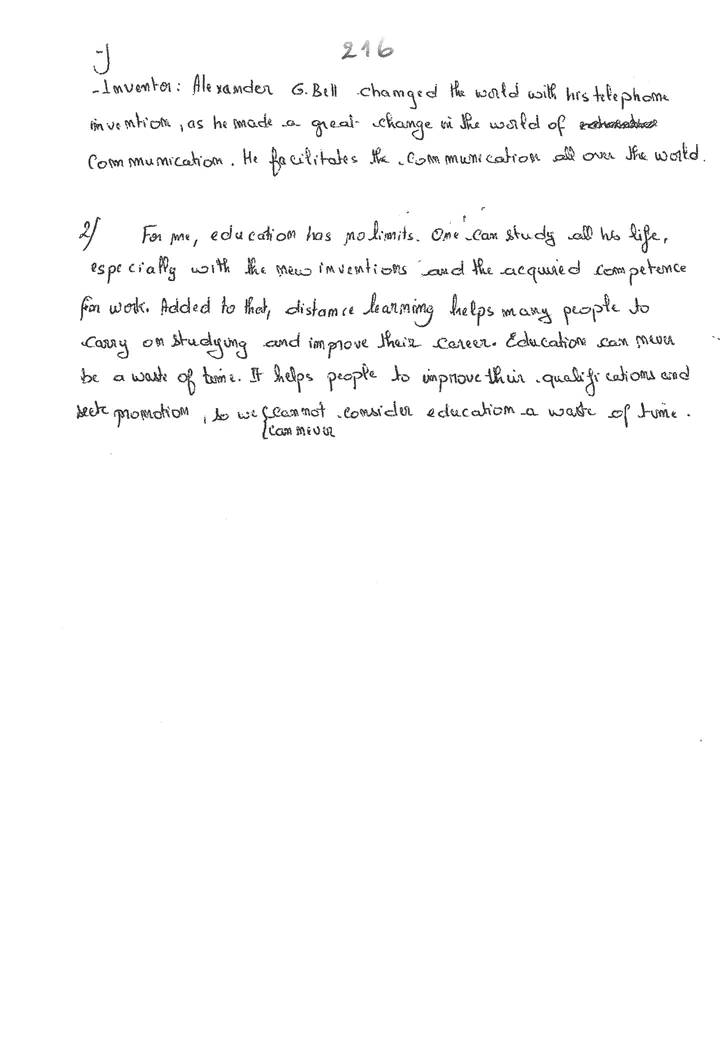 216
-J
-Inventor: Alexander G. Bell changed the world with his telephone
invention, as he made a great change in the world of
Communication. He facilitates the communication all over the world.
2/ For me, education has no limits. One can study all his life,
especially with the new inventions and the acquired competence
for work. Added to that, distance learning helps many people to
carry on studying and improve their career. Education can never
be a waste of time. It helps people to improve their qualifications and
seek promotion, so we {cannot consider education a waste of time.
{can never